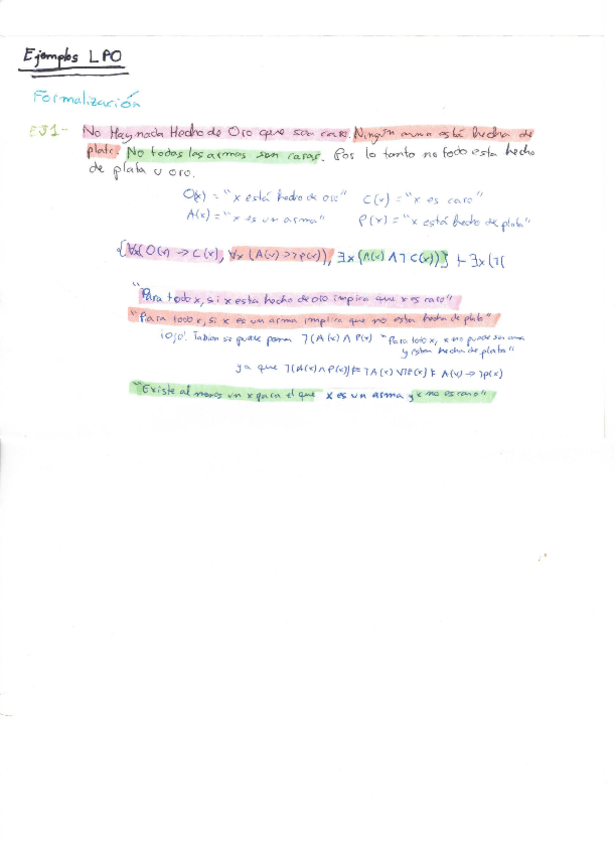 Ejemplos LPO
Formalización
EJ1- No Hay nada Hecho de Oro que sea caro. Ningún arma está hecha de
plata. No todas las armas son caras. Por lo tanto no todo esta hecho
de plata u oro.
O(x) = "x está hecho de oro" C(x) = "x es caro"
A(x) = "x es un arma" P(x) = "x está hecho de plata"
{∀x(O(x) → C(x), ∀x (A(x) → ¬P(x)), ∃x (A(x) ∧ ¬ C(x))} ⊢ ∃x (¬(
"Para todo x, si x esta hecho de oro implica que x es caro"
"Para todo x, si x es un arma implica que no esta hecha de plata"
¡Ojo! Tambien se puede poner ¬(A(x) ∧ P(x)) "Para todo x, x no puede ser arma
y estar hecha de plata"
ya que ¬(A(x) ∧ P(x)) ⊨ ¬A(x) ∨ ¬P(x) ⊨ A(x) → ¬P(x)
"Existe al menos un x para el que x es un arma y x no es caro"